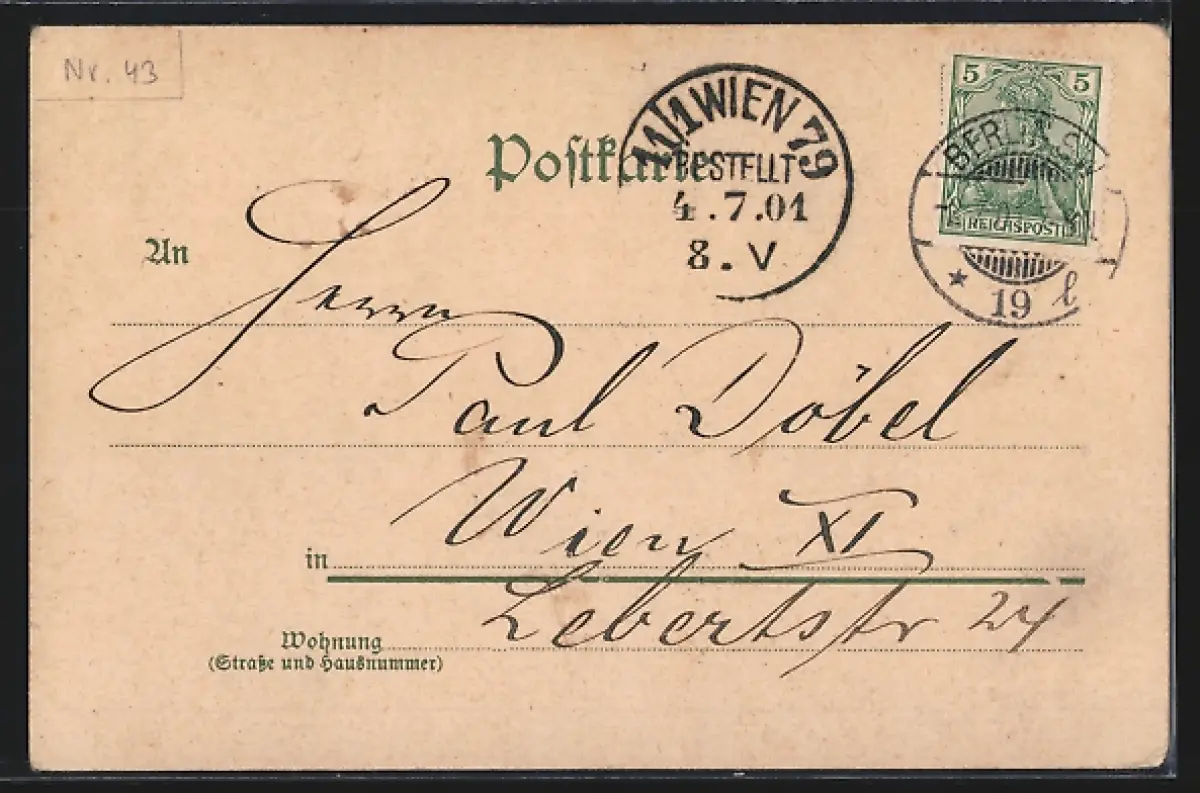 Nr. 43
Postkarte
11/1 WIEN 79
BESTELLT
4.7.01
8.V
5 5
REICHSPOST
BERLIN
* 19 l
An
Herrn
Paul Döbel
in Wien XI
Lebertstr 24
Wohnung
(Straße und Hausnummer)